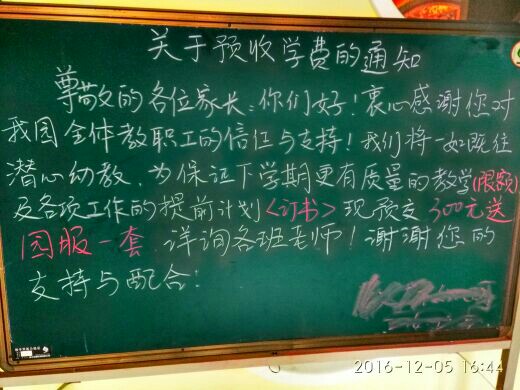 关于预收学费的通知
尊敬的各位家长:你们好!衷心感谢您对
我园全体教职工的信任与支持!我们将一如既往
潜心幼教,为保证下学期更有质量的教学(限额)
及各项工作的提前计划<订书>现预交300元送
园服一套 详询各班老师!谢谢您的
支持与配合!
2016-12-05 16:44